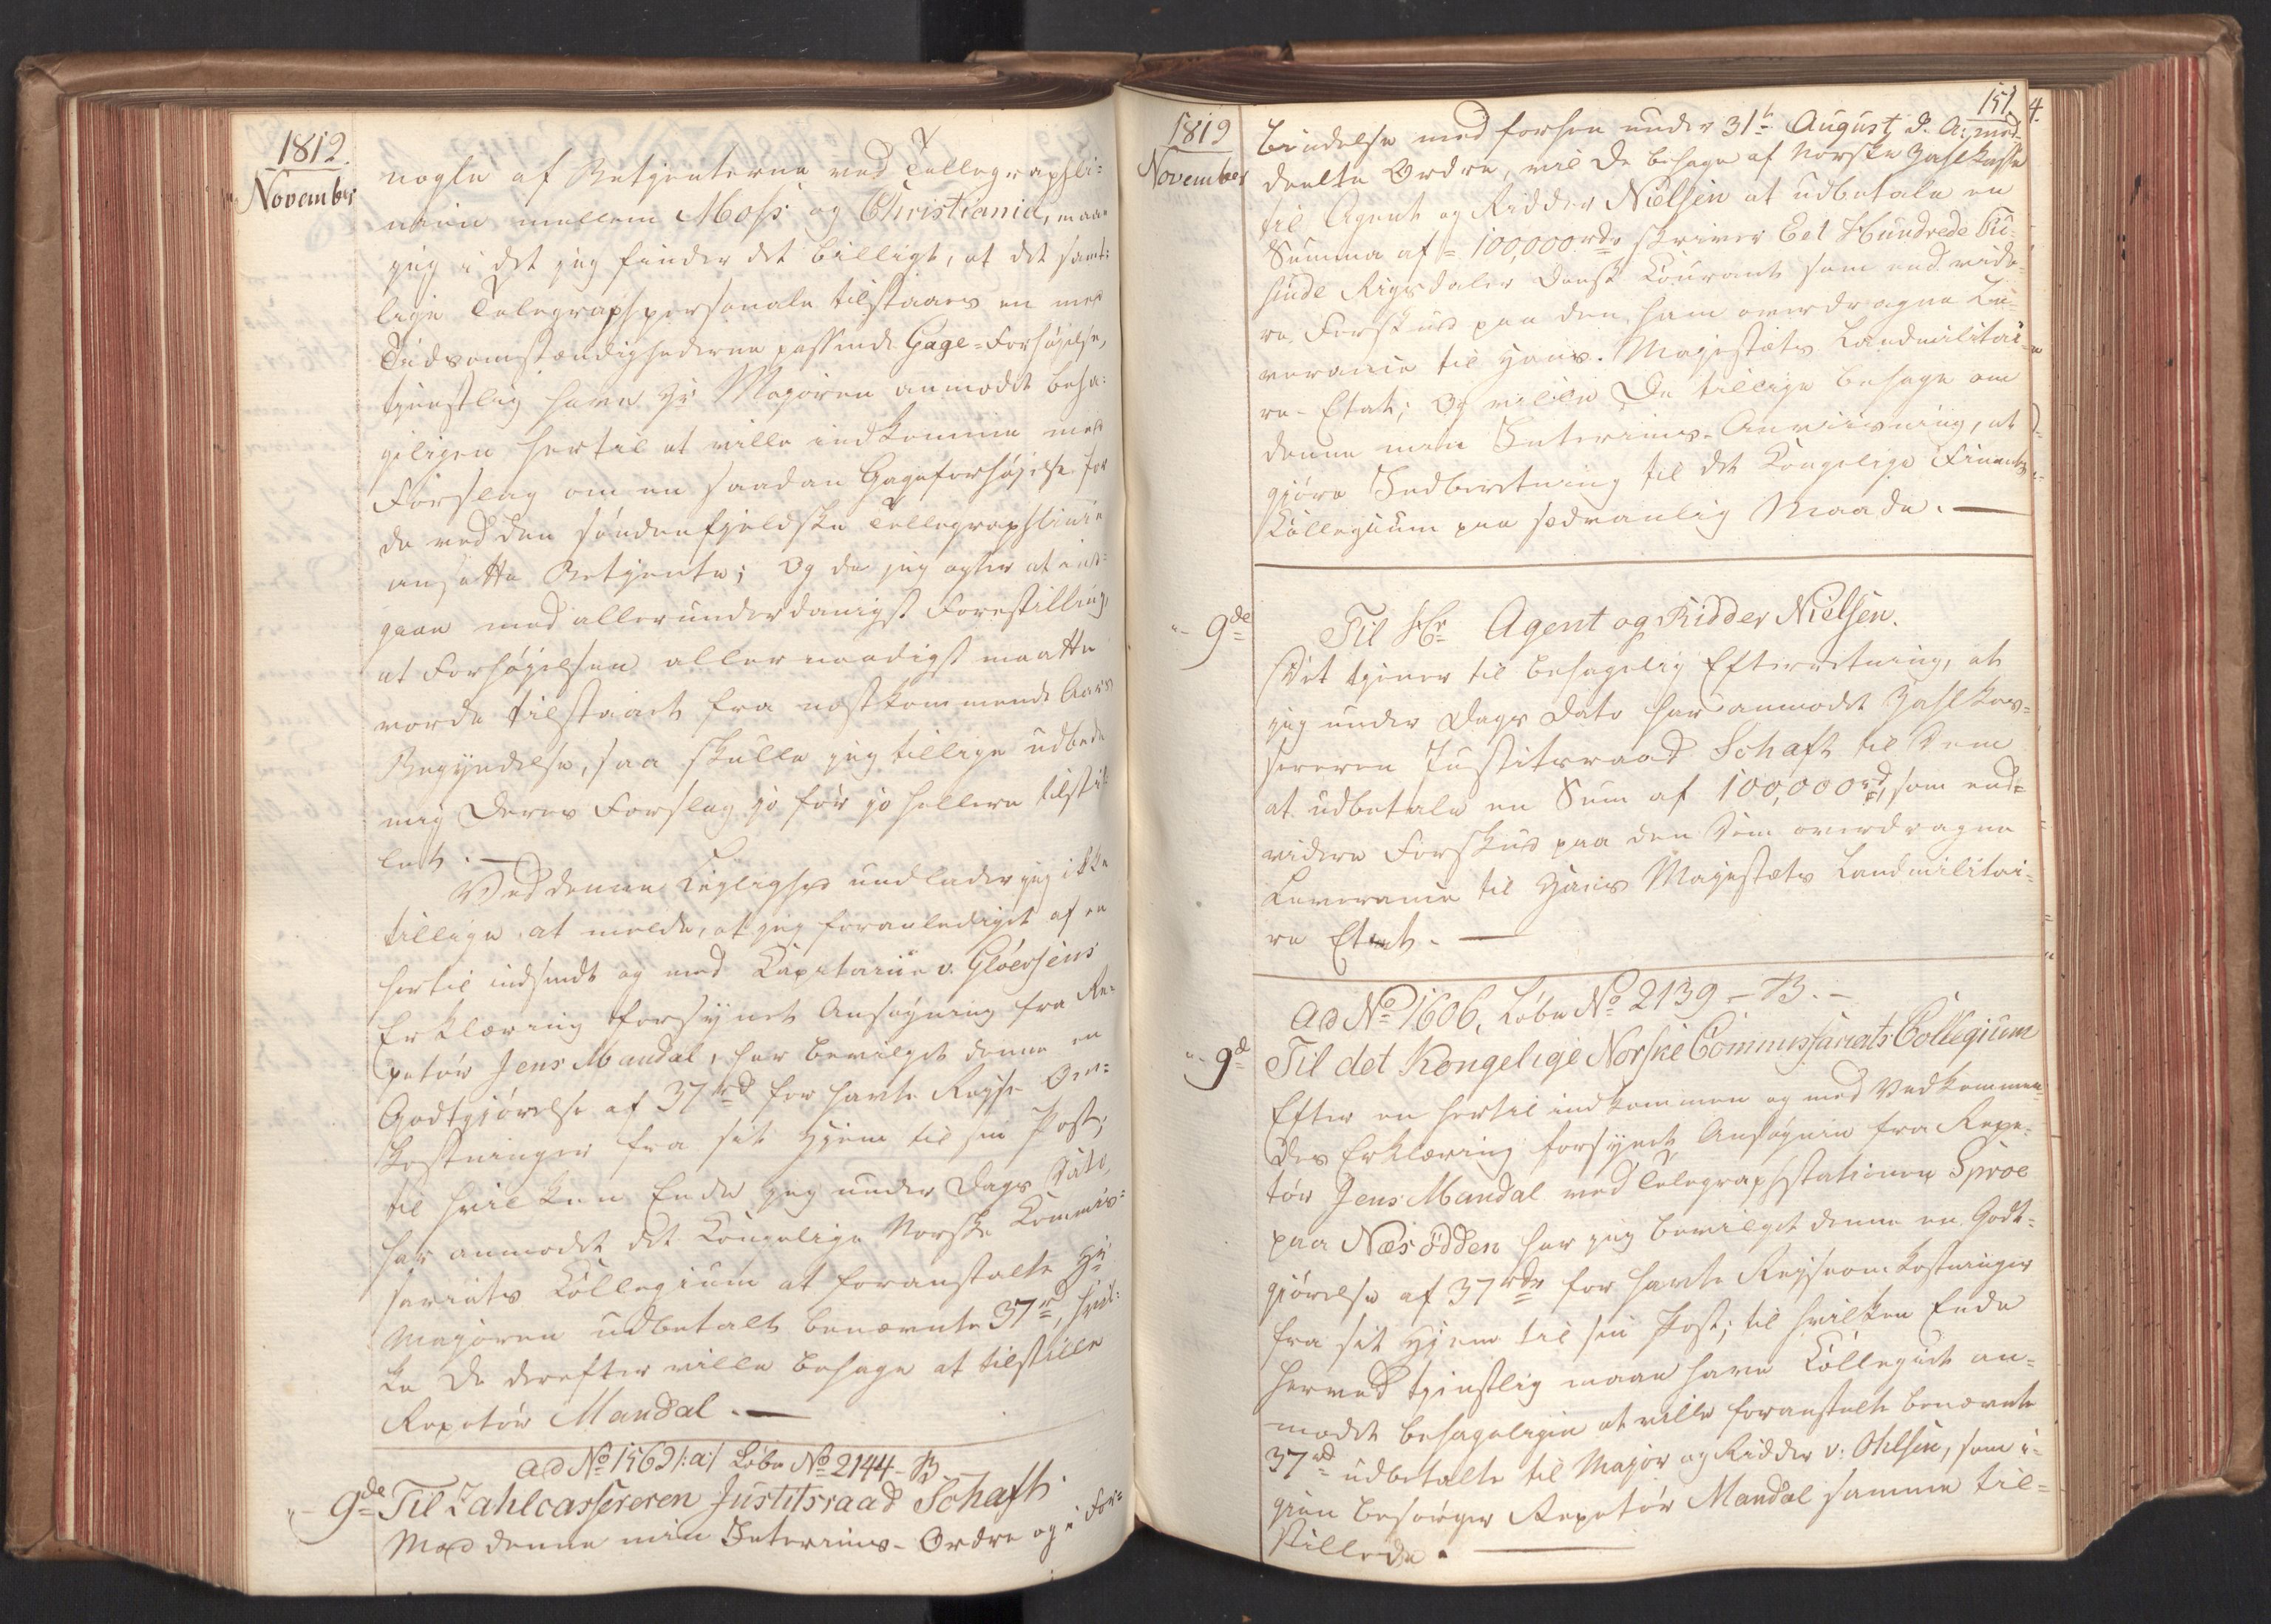 1812.
November
nogle af Betjenterne ved Tellegraphli-
nien mellem Moss og Christiania, maae
jeg i det jeg finder det billigt, at det samt-
lige Telegraphpersonale tilstaaes en med
Tidsomstændighederne passende Gage-Forhøjelse,
tjenstlig have Hr Majoren anmodet beha-
geligen hertil at ville indkomme med
Forslag om en saadan Gageforhøjelse for
de ved den søndenfjeldske Tellegraphlinie
ansatte Betjente; Og da jeg agter at ind-
gaae med allerunderdanigst Forestilling,
at Forhøjelsen allernaadigst maatte
vorde tilstaaet fra næstkommende Aars
Begyndelse, saa skulle jeg tillige udbede
mig Deres Forslag jo før jo hellere tilstil-
let. —
Ved denne Leylighed undlader jeg ikke
tillige at melde, at jeg foranlediget af en
hertil indsendt og med Capitaine v. Gløersens
Erklæring forsynet Ansøgning fra Re-
petør Jens Mandal, har bevilget denne en
Godtgjørelse af 37 rd for havte Rejse Om-
kostninger fra sit Hjem til sin Post;
til hvilken Ende jeg under Dags Dato
har anmodet det Kongelige Norske Kommis-
sariats Collegium at foranstalte Hr
Majoren udbetalt benævnte 37 rd, hvil-
ke De derefter ville behage at tilstille
Repetør Mandal. —
Ad No 1562/:a:/ Løbe No 2144 - B
"- 9de Til Zahlcassereren Justitsraad Schaft.
Med denne min Interims-Ordre og i For-
151.
4.
1812
November
bindelse med forhen under 31te August d. A. med-
deelte Ordre, vil De behage af Norske Zahlkasse
til Agent og Ridder Nielsen at udbetale en
Summa af = 100,000 rdr skriver Eet Hundrede Tu-
sinde Rigsdaler Dansk Courant som end vide-
re Forskud paa den ham overdragne Le-
verance til Hans Majestæts Landmilitai-
re-Etat; Og ville De tillige behage om
denne min Interims-Anviisning, at
gjøre Indberetning til det Kongelige Finants
Kollegium paa sædvanlig Maade. —
"- 9de
Til Hr Agent og Ridder Nielsen.
Det tjener til behagelig Efterretning, at
jeg under Dags Dato har anmodet Zahlkas-
sereren Justitsraad Schaft til Dem
at udbetale en Sum af 100,000 rd, som end-
videre Forskud paa den Dem overdragne
Leverance til Hans Majestæts Landmilitai-
re Etat. —
Ad No 1606, Løbe No 2139 - B. -
"- 9de Til det Kongelige Norske Commissariats Collegium
Efter en hertil indkommen og med Vedkommen-
des Erklæring forsynet Ansøgning fra Repe-
tør Jens Mandal ved Telegraphstationen Sproe
paa Næsødden har jeg bevilget denne en Godt-
gjørelse af 37 rdr for havte Rejseomkostninger
fra sit Hjem til sin Post; til hvilken Ende
herved tjenstlig maae have Collegiet an-
modet behageligen at ville foranstalte benævnte
37 rd udbetalte til Major og Ridder v: Ohlsen, som i-
gien besørger Repetør Mandal samme til-
stillede. —